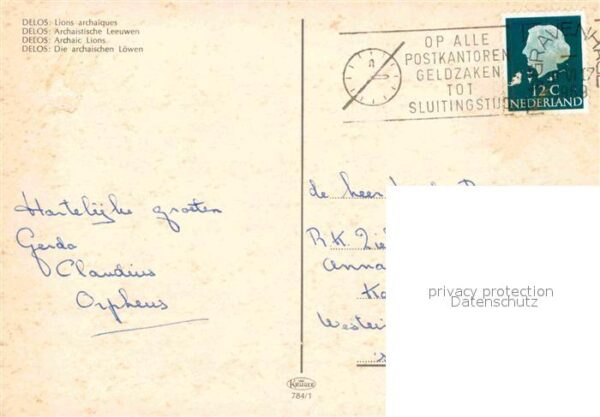 DELOS: Lions archaïques
DELOS: Archaistische Leeuwen
DELOS: Archaic Lions
DELOS: Die archaischen Löwen
OP ALLE
POSTKANTOREN
GELDZAKEN
TOT
SLUITINGSTIJD
12 C
NEDERLAND
Hartelijke groeten
Gerda
Claudius
Orpheus
de heer
R.K. Zie
Anna
Ka
Westei
privacy protection
Datenschutz
KRÜGER
784/1